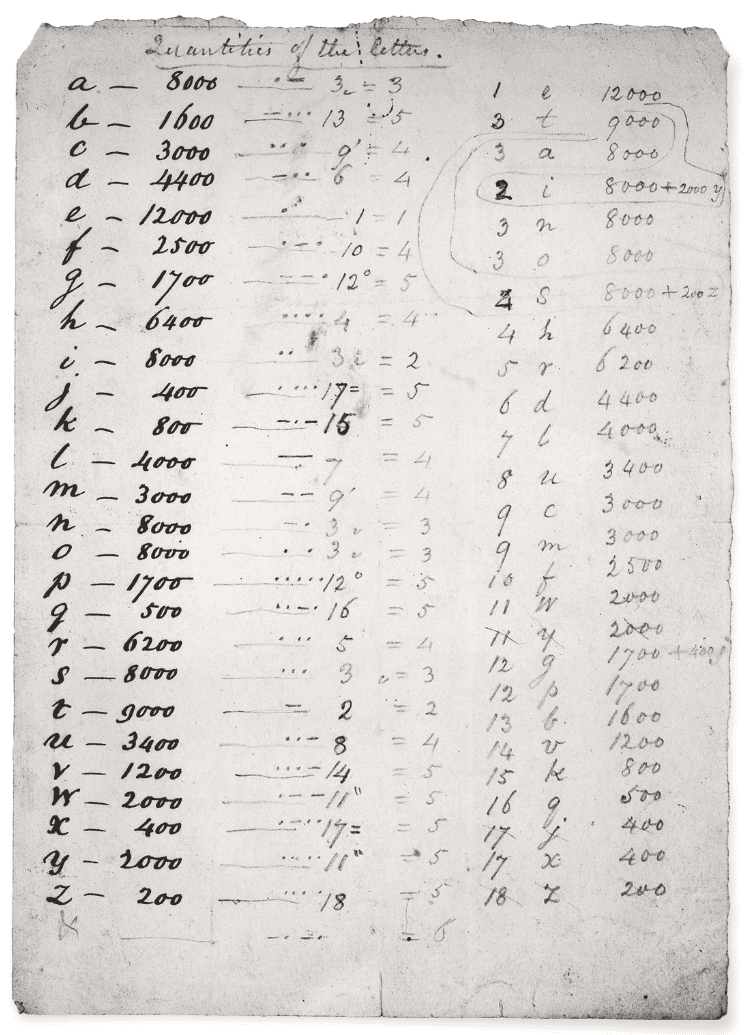 Quantities of the letters.
a — 8000 3 = 3
b — 1600 13 = 5
c — 3000 9 = 4
d — 4400 6 = 4
e — 12000 1 = 1
f — 2500 10 = 4
g — 1700 12° = 5
h — 6400 4 = 4
i — 8000 3 = 2
j — 400 17= = 5
k — 800 15 = 5
l — 4000 7 = 4
m — 3000 9' = 4
n — 8000 3 = 3
o — 8000 3 = 3
p — 1700 12° = 5
q — 500 16 = 5
r — 6200 5 = 4
s — 8000 3 = 3
t — 9000 2 = 2
u — 3400 8 = 4
v — 1200 14 = 5
w — 2000 11" = 5
x — 400 17= = 5
y — 2000 11" = 5
z — 200 18 = 5
& = 6
1 e 12000
3 t 9000
3 a 8000
2 i 8000+2000 y
3 n 8000
3 o 8000
4 s 8000+200 z
4 h 6400
5 r 6200
6 d 4400
7 l 4000
8 u 3400
9 c 3000
9 m 3000
10 f 2500
11 w 2000
11 y 2000
12 g 1700 + 400 j
12 p 1700
13 b 1600
14 v 1200
15 k 800
16 q 500
17 j 400
17 x 400
18 z 200